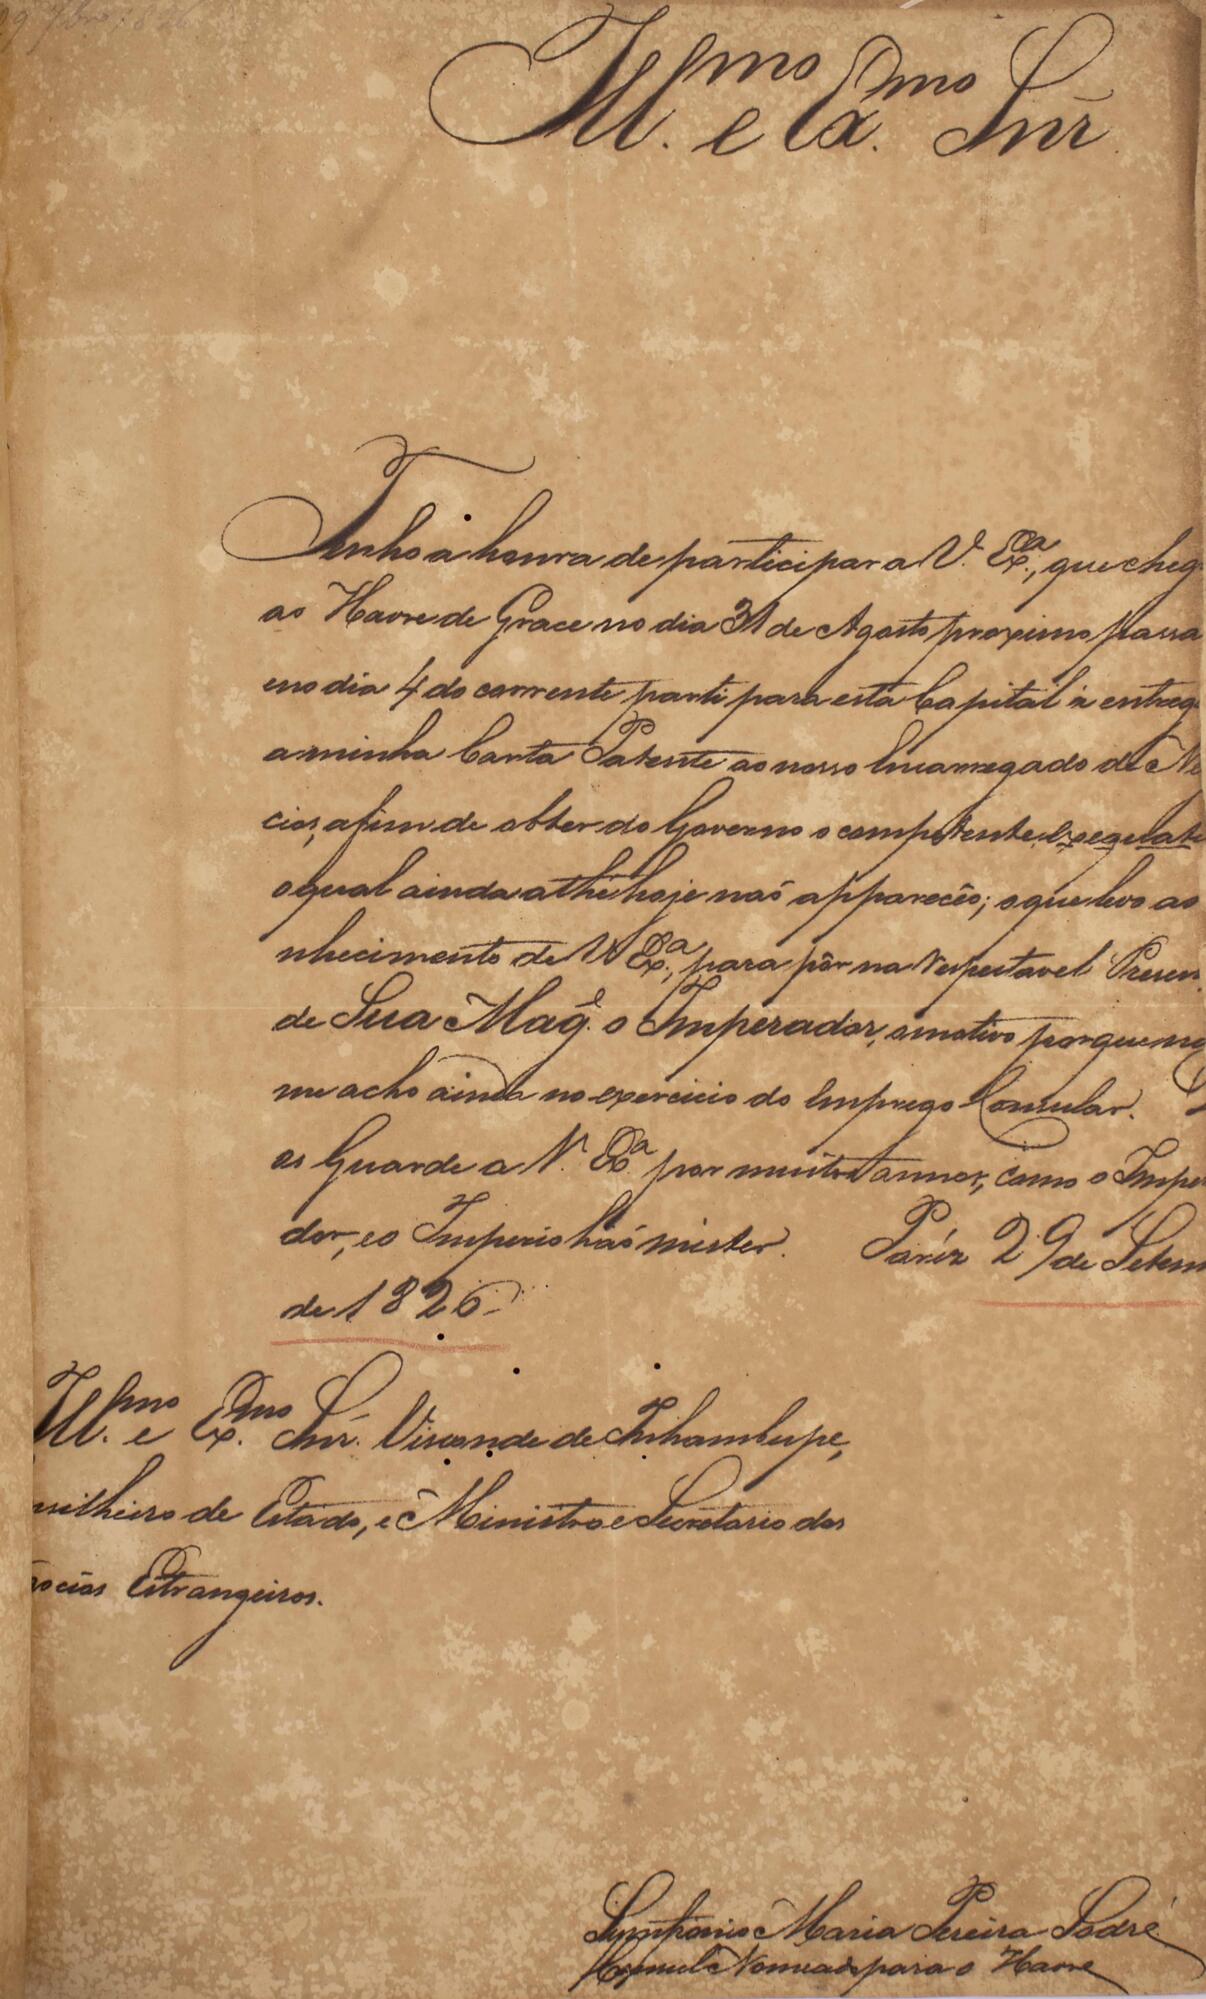 29 7bro 1826
Ill.mo e Ex.mo Snr
Tenho a honra de participar a V. Ex.a, que cheg
ao Havre de Grace no dia 31 de Agosto proximo passa
e no dia 4 do corrente parti para esta Capital a entreg
a minha Carta Patente ao nosso Encarregado de Ne
cios, afim de obter do Governo o competente Exequat
o qual ainda athé hoje naõ appareceo; o que levo ao
nhecimento de V. Ex.a, para pôr na Respeitavel Presen
de Sua Mag.e o Imperador, o motivo porque na
me acho ainda no exercicio do Emprego Consular. D
os Guarde a V. Ex.a por muitos annos, como o Impe
dor, e o Imperio háo mister. Paríz 29 de Setem
de 1826
Ill.mo e Ex.mo Snr. Visconde de Inhambupe,
nselheiro de Estado, e Ministro e Secretario dos
gocios Estrangeiros.
Symfronio Maria Pereira Sodré
Consul Nomeado para o Havre